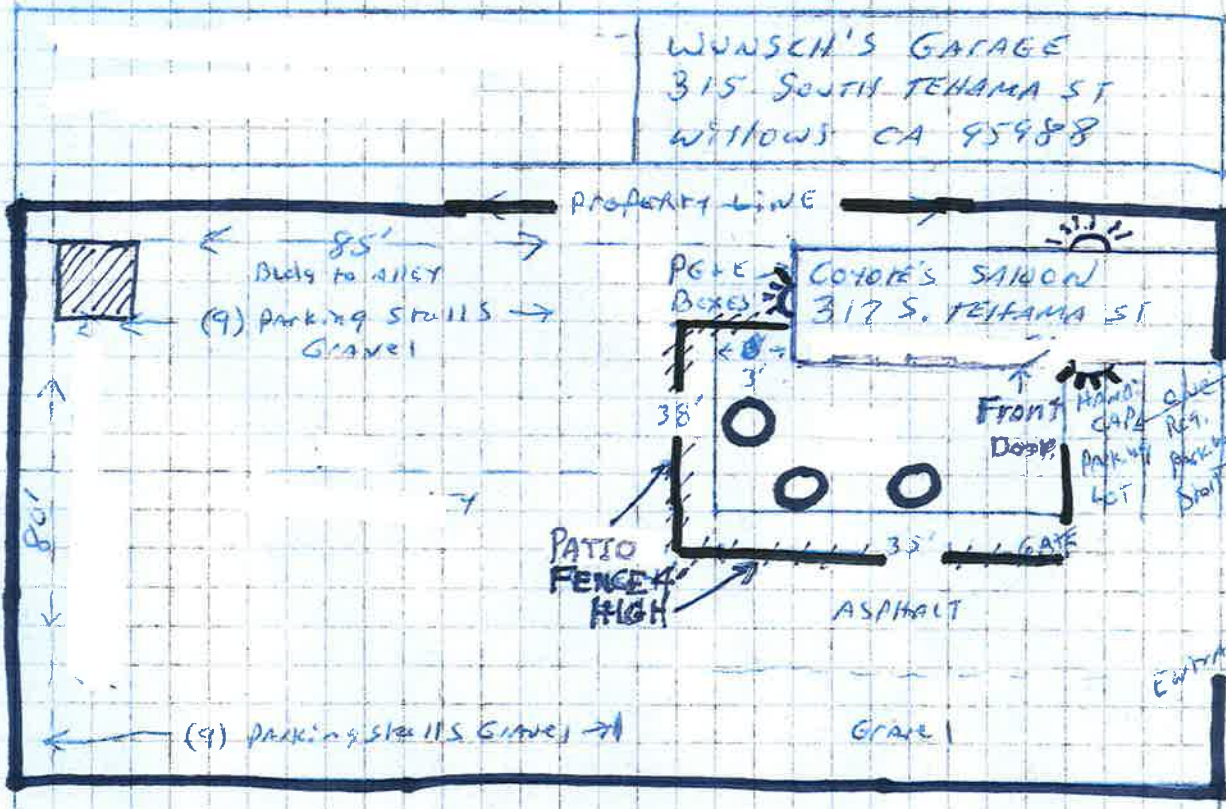 WUNSCH'S GARAGE
315 SOUTH TEHAMA ST
WILLOWS CA 95988
PROPERTY LINE
85'
Bldg to Alley
(9) Parking Stalls
Gravel
PG+E
Boxes
COYOTE'S SALOON
317 S. TEHAMA ST
3'
38'
Front
Door
HANDI
CAPE
Parking
LOT
ONE
Reg.
Parking
80'
PATIO
FENCE 4'
HIGH
35'
GATE
ASPHALT
(9) Parking Stalls Gravel
Gravel